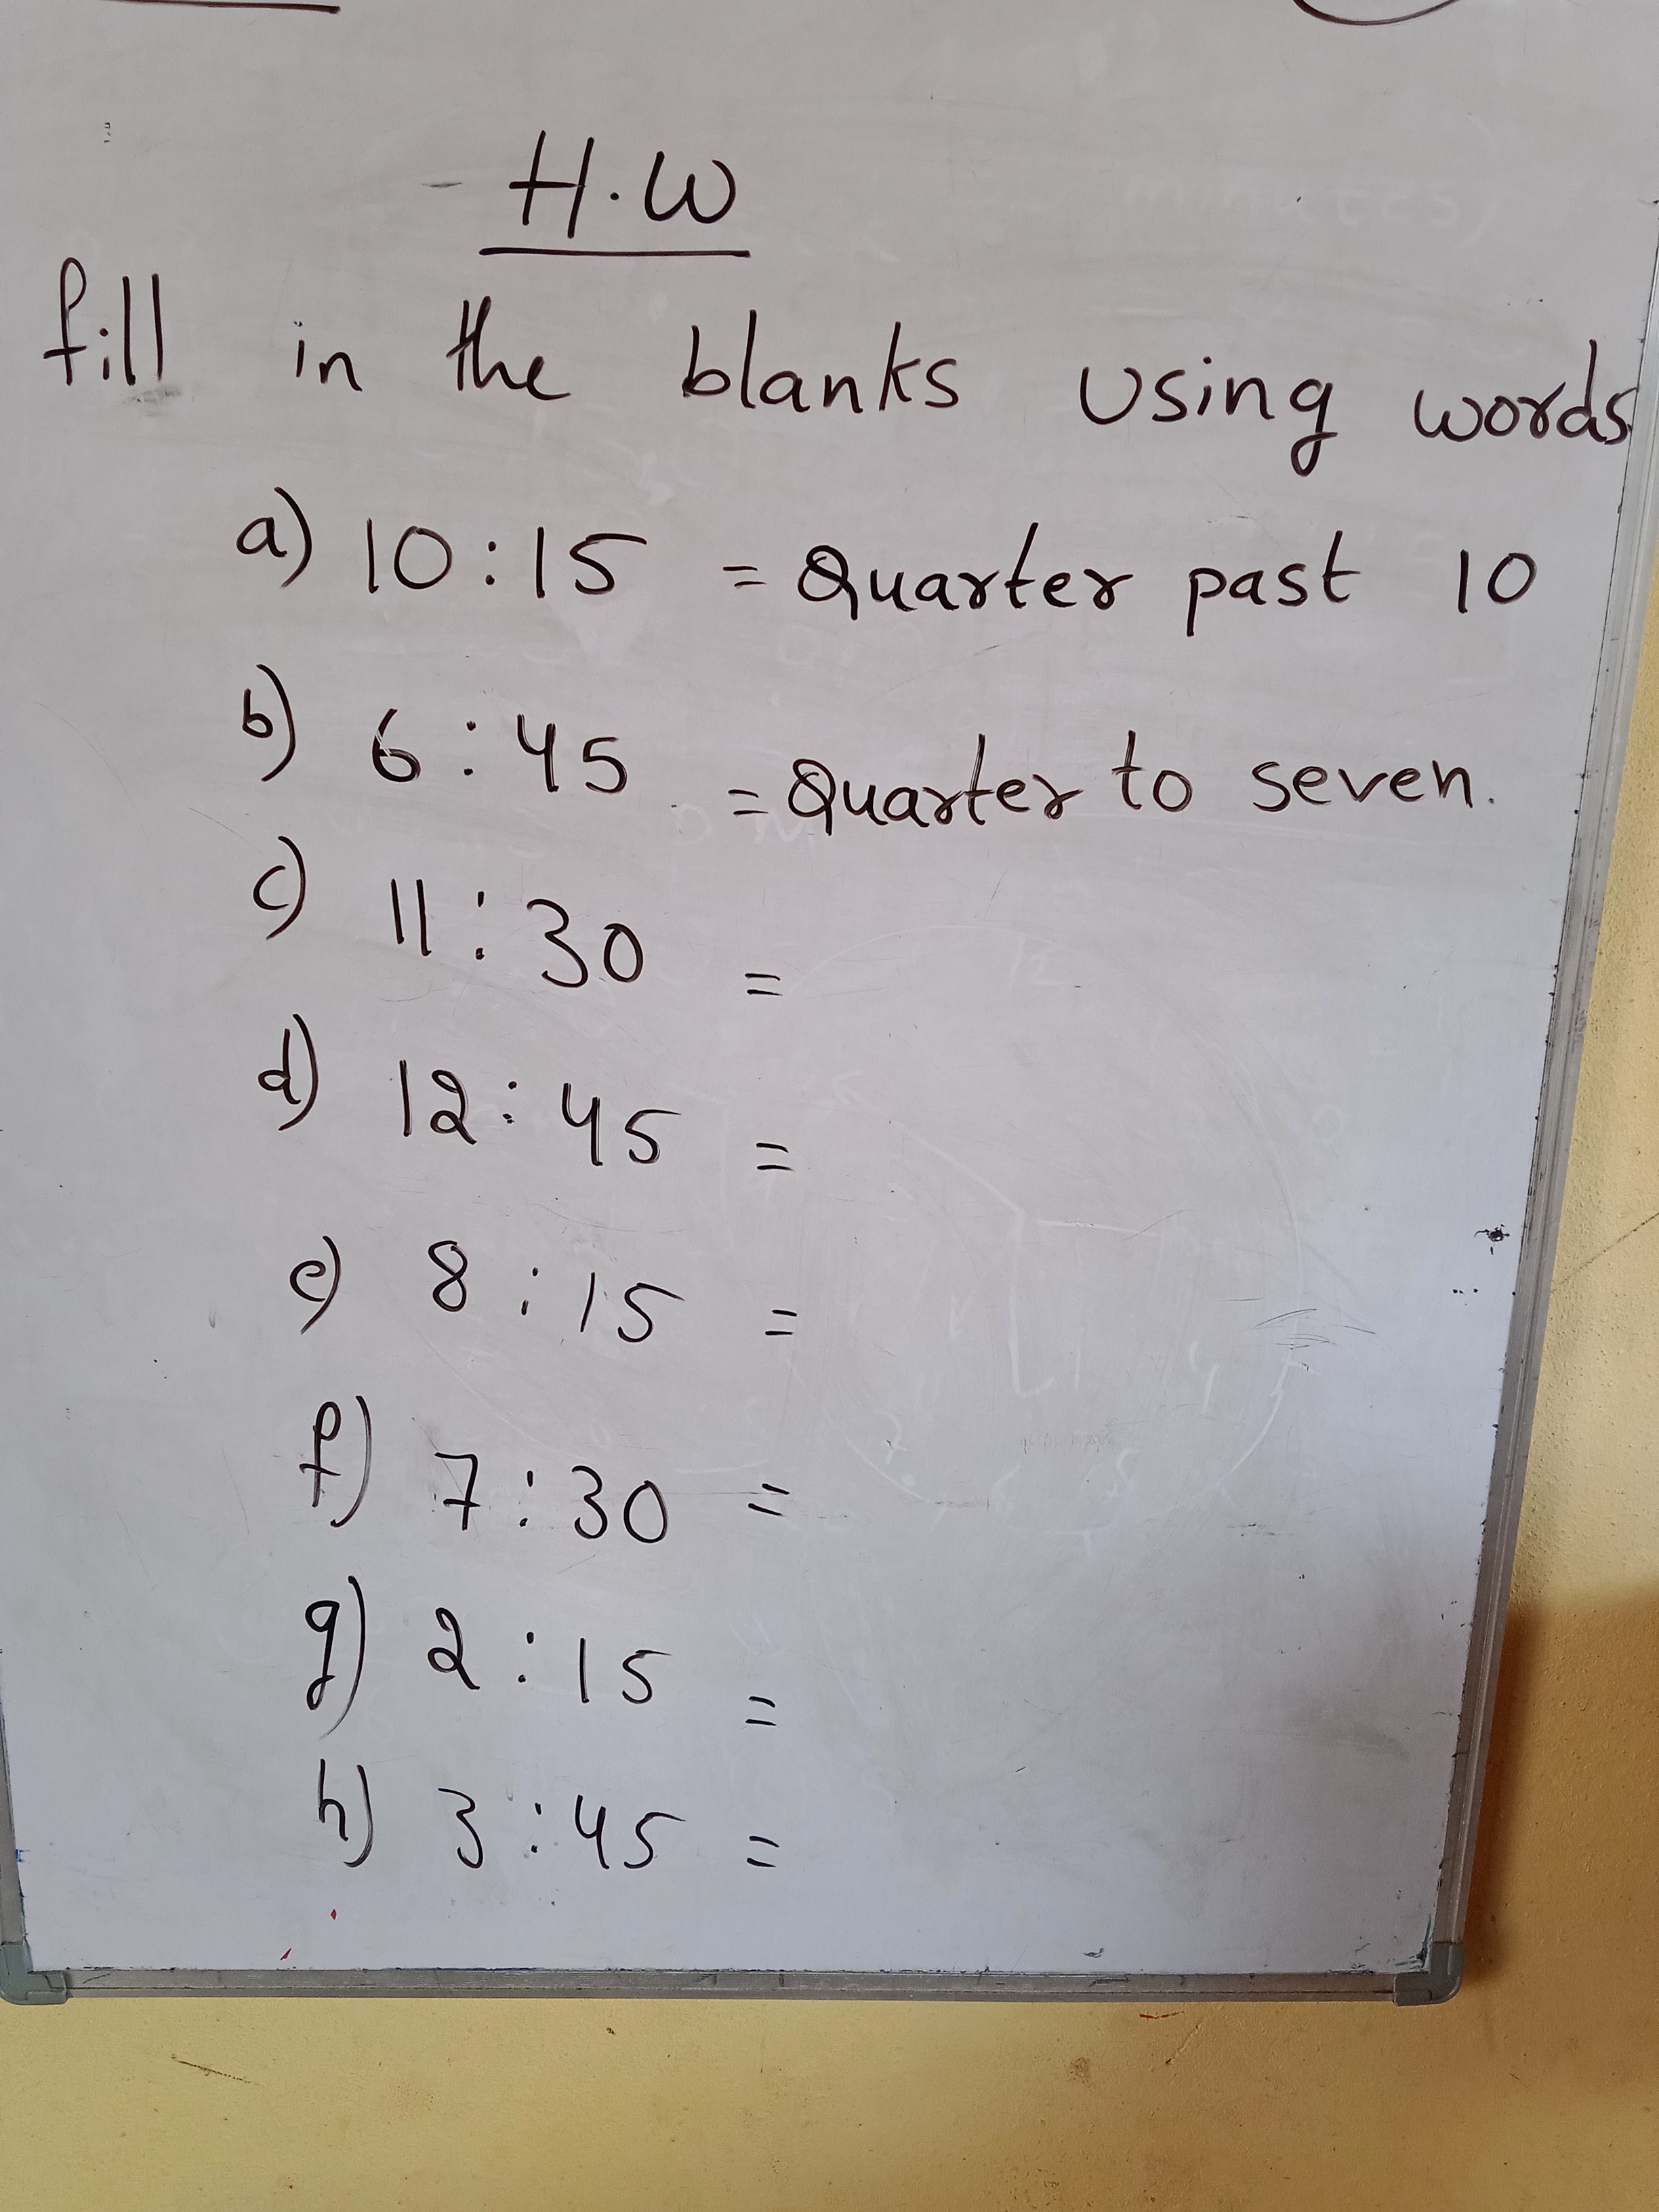 H.W
fill in the blanks using words
a) 10:15 = Quarter past 10
b) 6:45 = Quarter to seven.
c) 11:30 =
d) 12:45 =
e) 8:15 =
f) 7:30 =
g) 2:15 =
h) 3:45 =